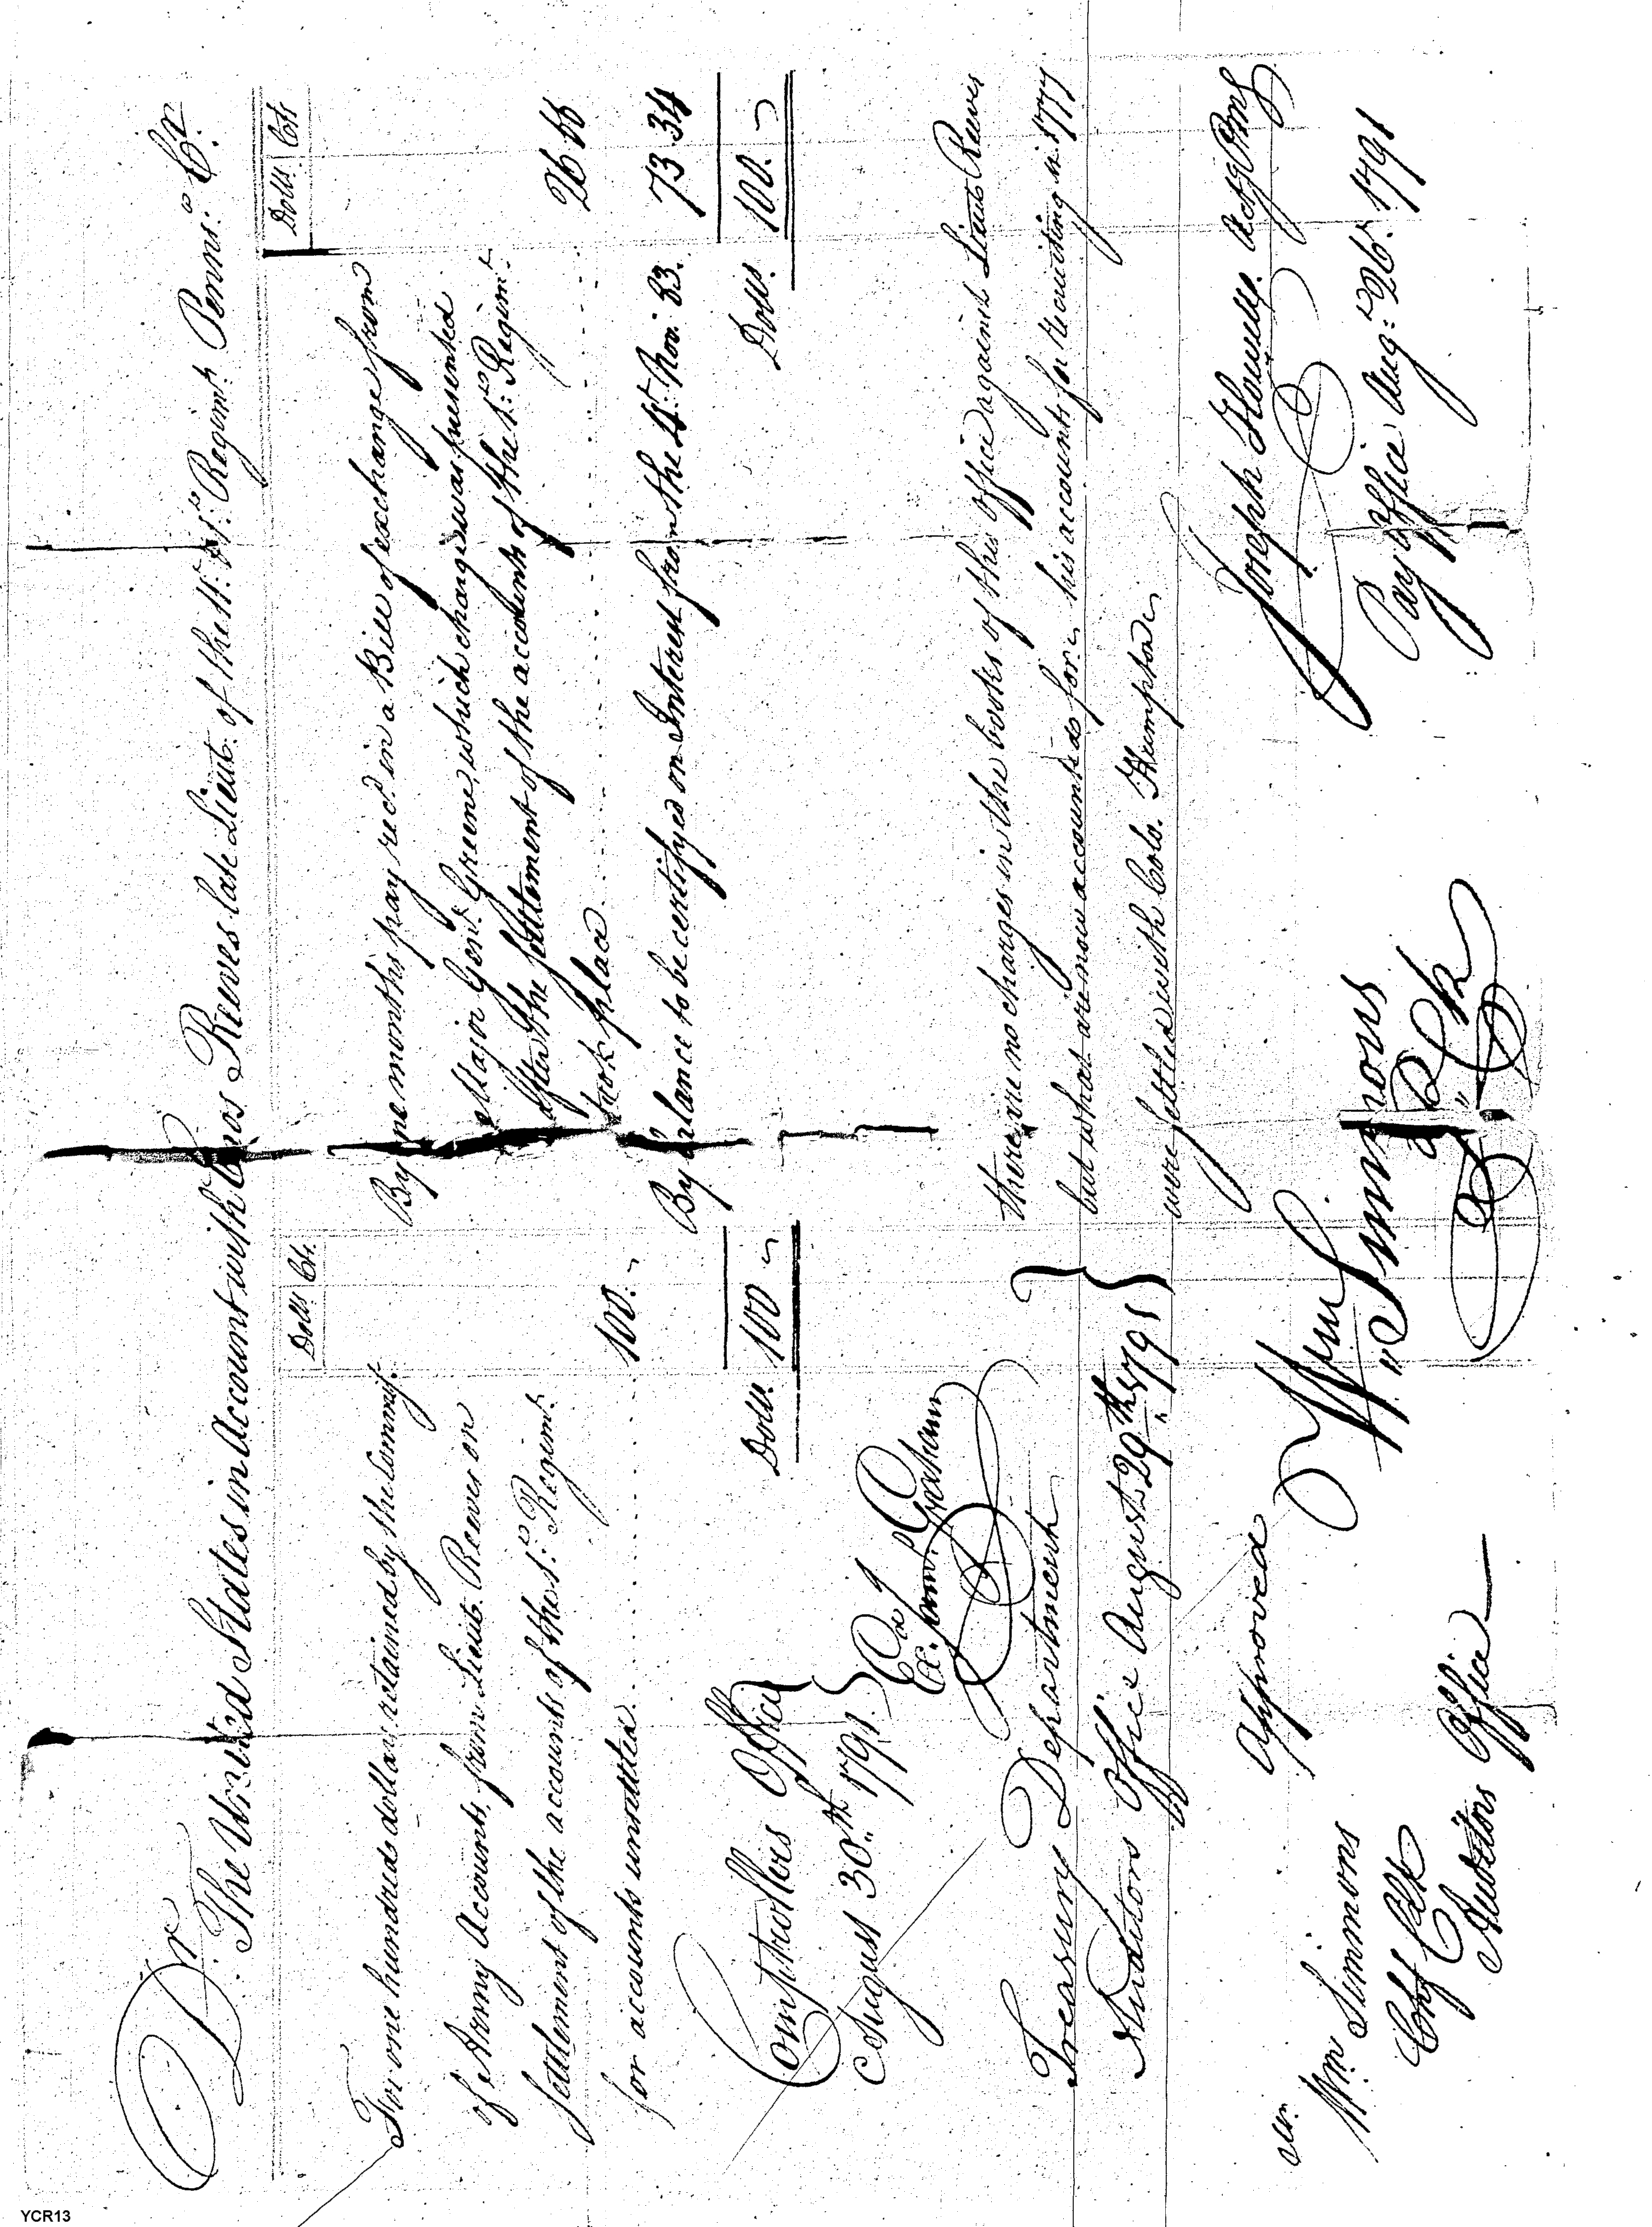 Dr. The United States in Account with Enos Reeves late Lieut. of the 11th. Regimt. Penns:a Cr.
Dolls Cts.
For one hundred dollars retained by the Commsr.
of Army Accounts, from Lieut. Reeves on
settlement of the accounts of the 1st: Regimt.
for accounts unsettled. 100. "
Dolls. 100 "
Dolls. Cts
By one months pay recd. in a Bill of exchange from
Major Genl. Greene, which charge was presented
after the settlement of the accounts of the 1st: Regimt.
took place 26 66
By balance to be certifyed on Interest from the 4th. Nov. 83. 73 34
Dolls. 100. "
Comptrollers Office
August 30th. 1791.
Exd
Ex. Saml. Graham
Treasury Department
Auditors Office August 29th 1791
there are no charges in the books of this office against Lieut Reeves
but what are now accounted for. his accounts for recruiting in 1777
were settled with Colo. Humpton
Approved
Wm Simmons
Joseph Howell. Actg PMG
Pay Office Aug: 26th. 1791
Mr.
Wm Simmons
Chf Clk
Auditors Office
YCR13